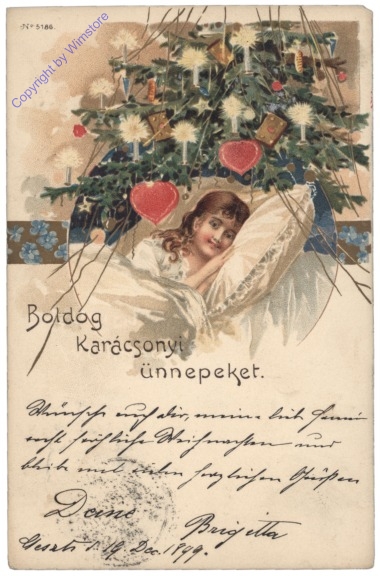 Nº 5186.
Copyright by Wimstore
Boldog
Karácsonyi
ünnepeket.
Wünsche auch dir, meine liebe
recht fröhliche Weihnachten und
bleibe mit vielen herzlichen Grüßen
Deine
Brigitta
19. Dec. 1899.